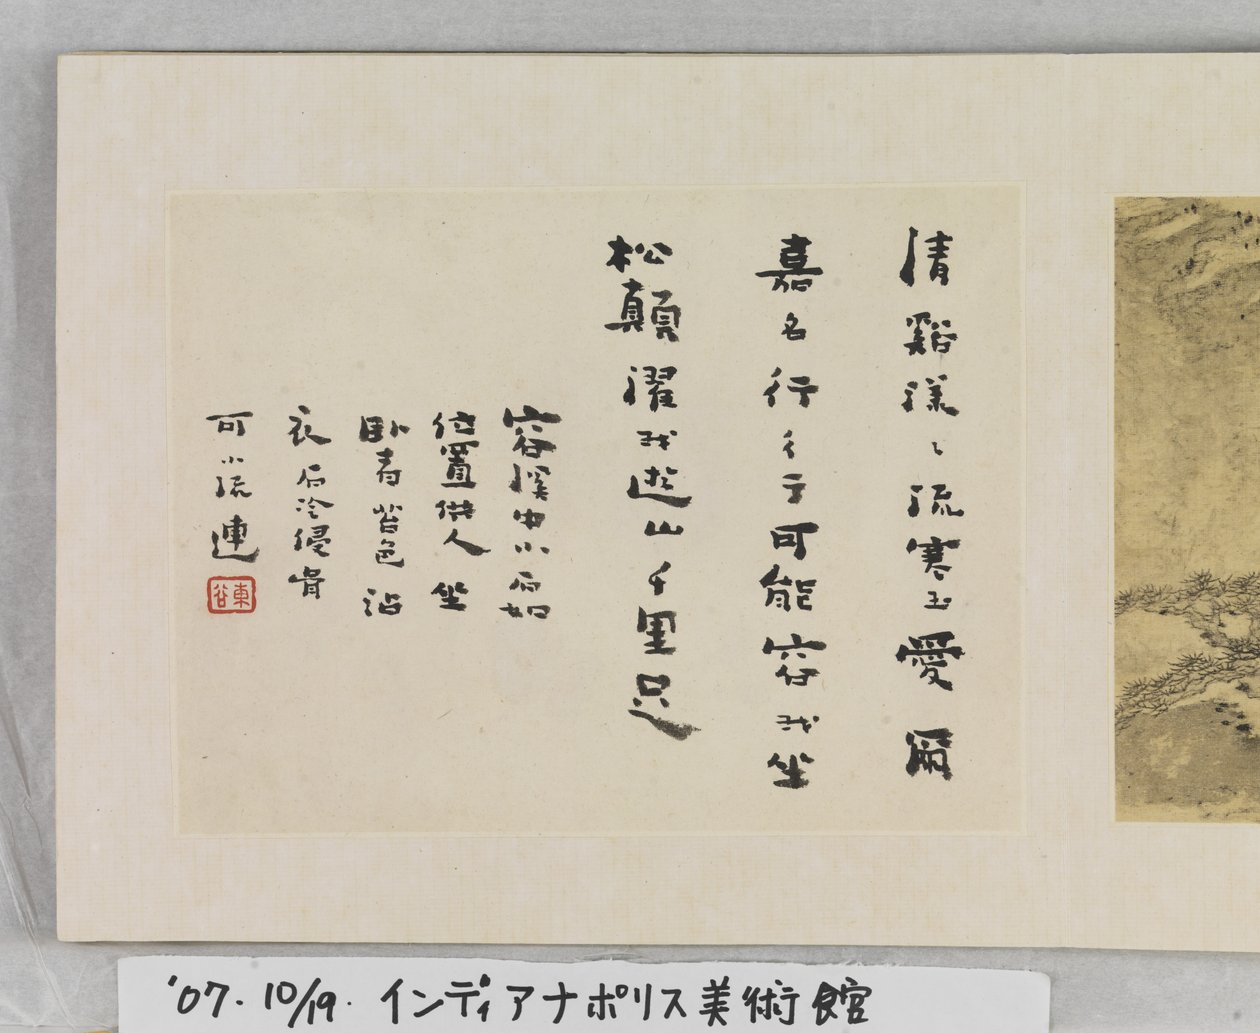 清谿漾〻流寒玉愛爾
嘉名行行可能容我坐
松顛濯我遊山千里足
容溪中小石如
位置供人坐
臥看苔色沾
衣石冷侵骨
可小流連
東谷
'07.10/19. インディアナポリス美術館